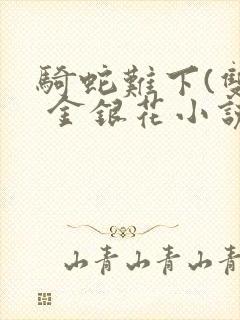 騎蛇難下(雙
金銀花小説
山青山青山青